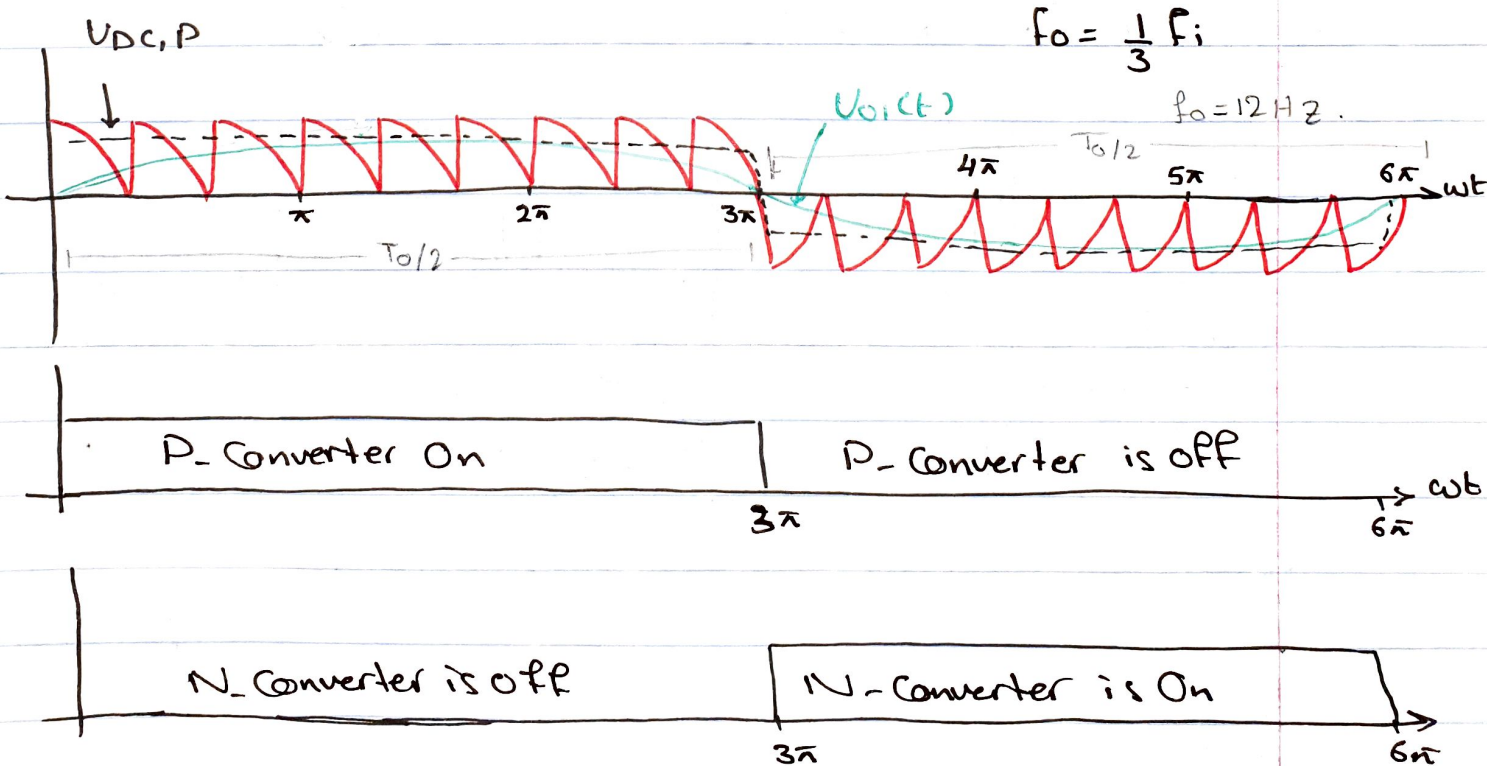 VDC,P
fo = 1/3 fi
Vo,(t)
fo = 12 Hz.
To/2
π 2π 3π 4π 5π 6π ωt
To/2
P- Converter On
P- Converter is off
ωt
3π 6π
N- Converter is off
N- Converter is On
3π 6π